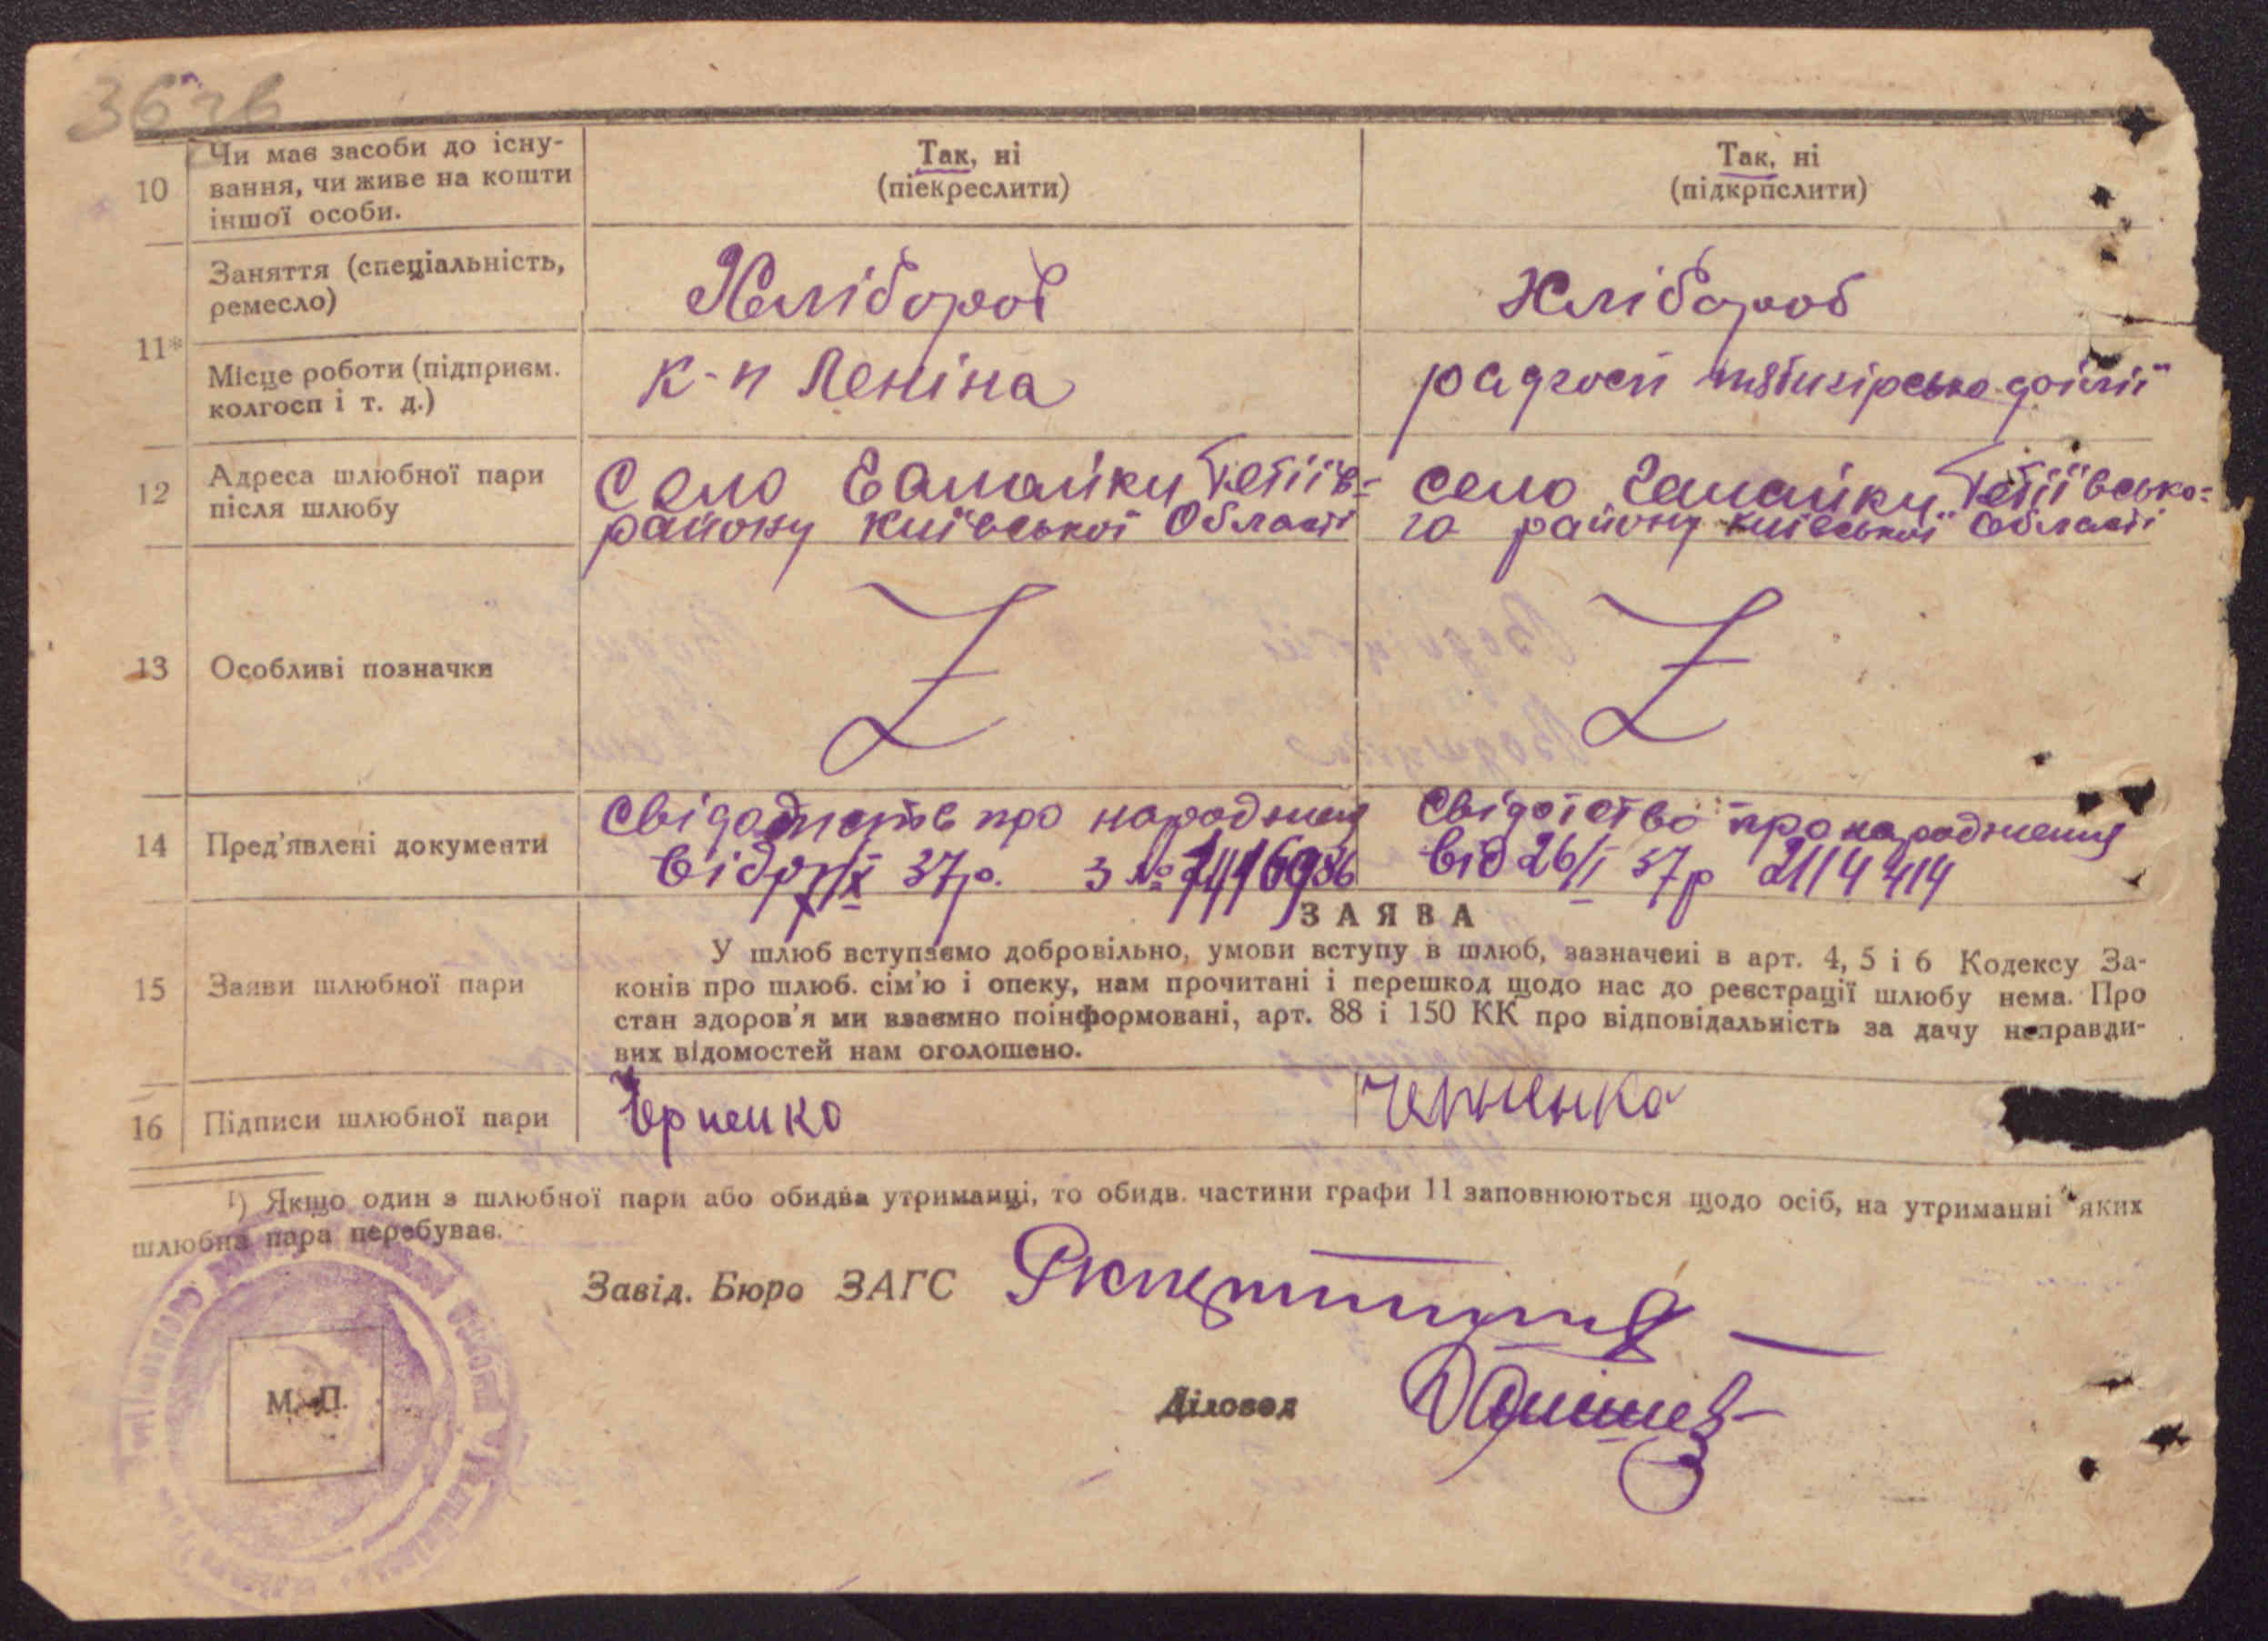 10 Чи має засоби до існу-
вання, чи живе на кошти
іншої особи.
Так, ні
(піекреслити)
Так, ні
(підкрпслити)
11*
Заняття (спеціальність,
ремесло)
Хлібороб
Хлібороб
Місце роботи (підприєм.
колгосп і т. д.)
к-п Леніна
радгосп
12 Адреса шлюбної пари
після шлюбу
Село Тетіїв-
району Київської Області
село Тетіївсько-
го району Київської Області
13 Особливі позначки
Z
Z
14 Пред'явлені документи
про народження
37р. з №
Свідотство про народження
від 26/I 37р 2114414
15 Заяви шлюбної пари
ЗАЯВА
У шлюб вступаємо добровільно, умови вступу в шлюб, зазначені в арт. 4, 5 і 6 Кодексу За-
конів про шлюб. сім'ю і опеку, нам прочитані і перешкод щодо нас до реєстрації шлюбу нема. Про
стан здоров'я ми взаємно поінформовані, арт. 88 і 150 КК про відповідальність за дачу неправди-
вих відомостей нам оголошено.
16 Підписи шлюбної пари
Черненко
Черненко
1) Якщо один з шлюбної пари або обидва утриманці, то обидв. частини графи 11 заповнюються щодо осіб, на утриманні яких
шлюбна пара перебуває.
Завід. Бюро ЗАГС
М. П.
Діловод